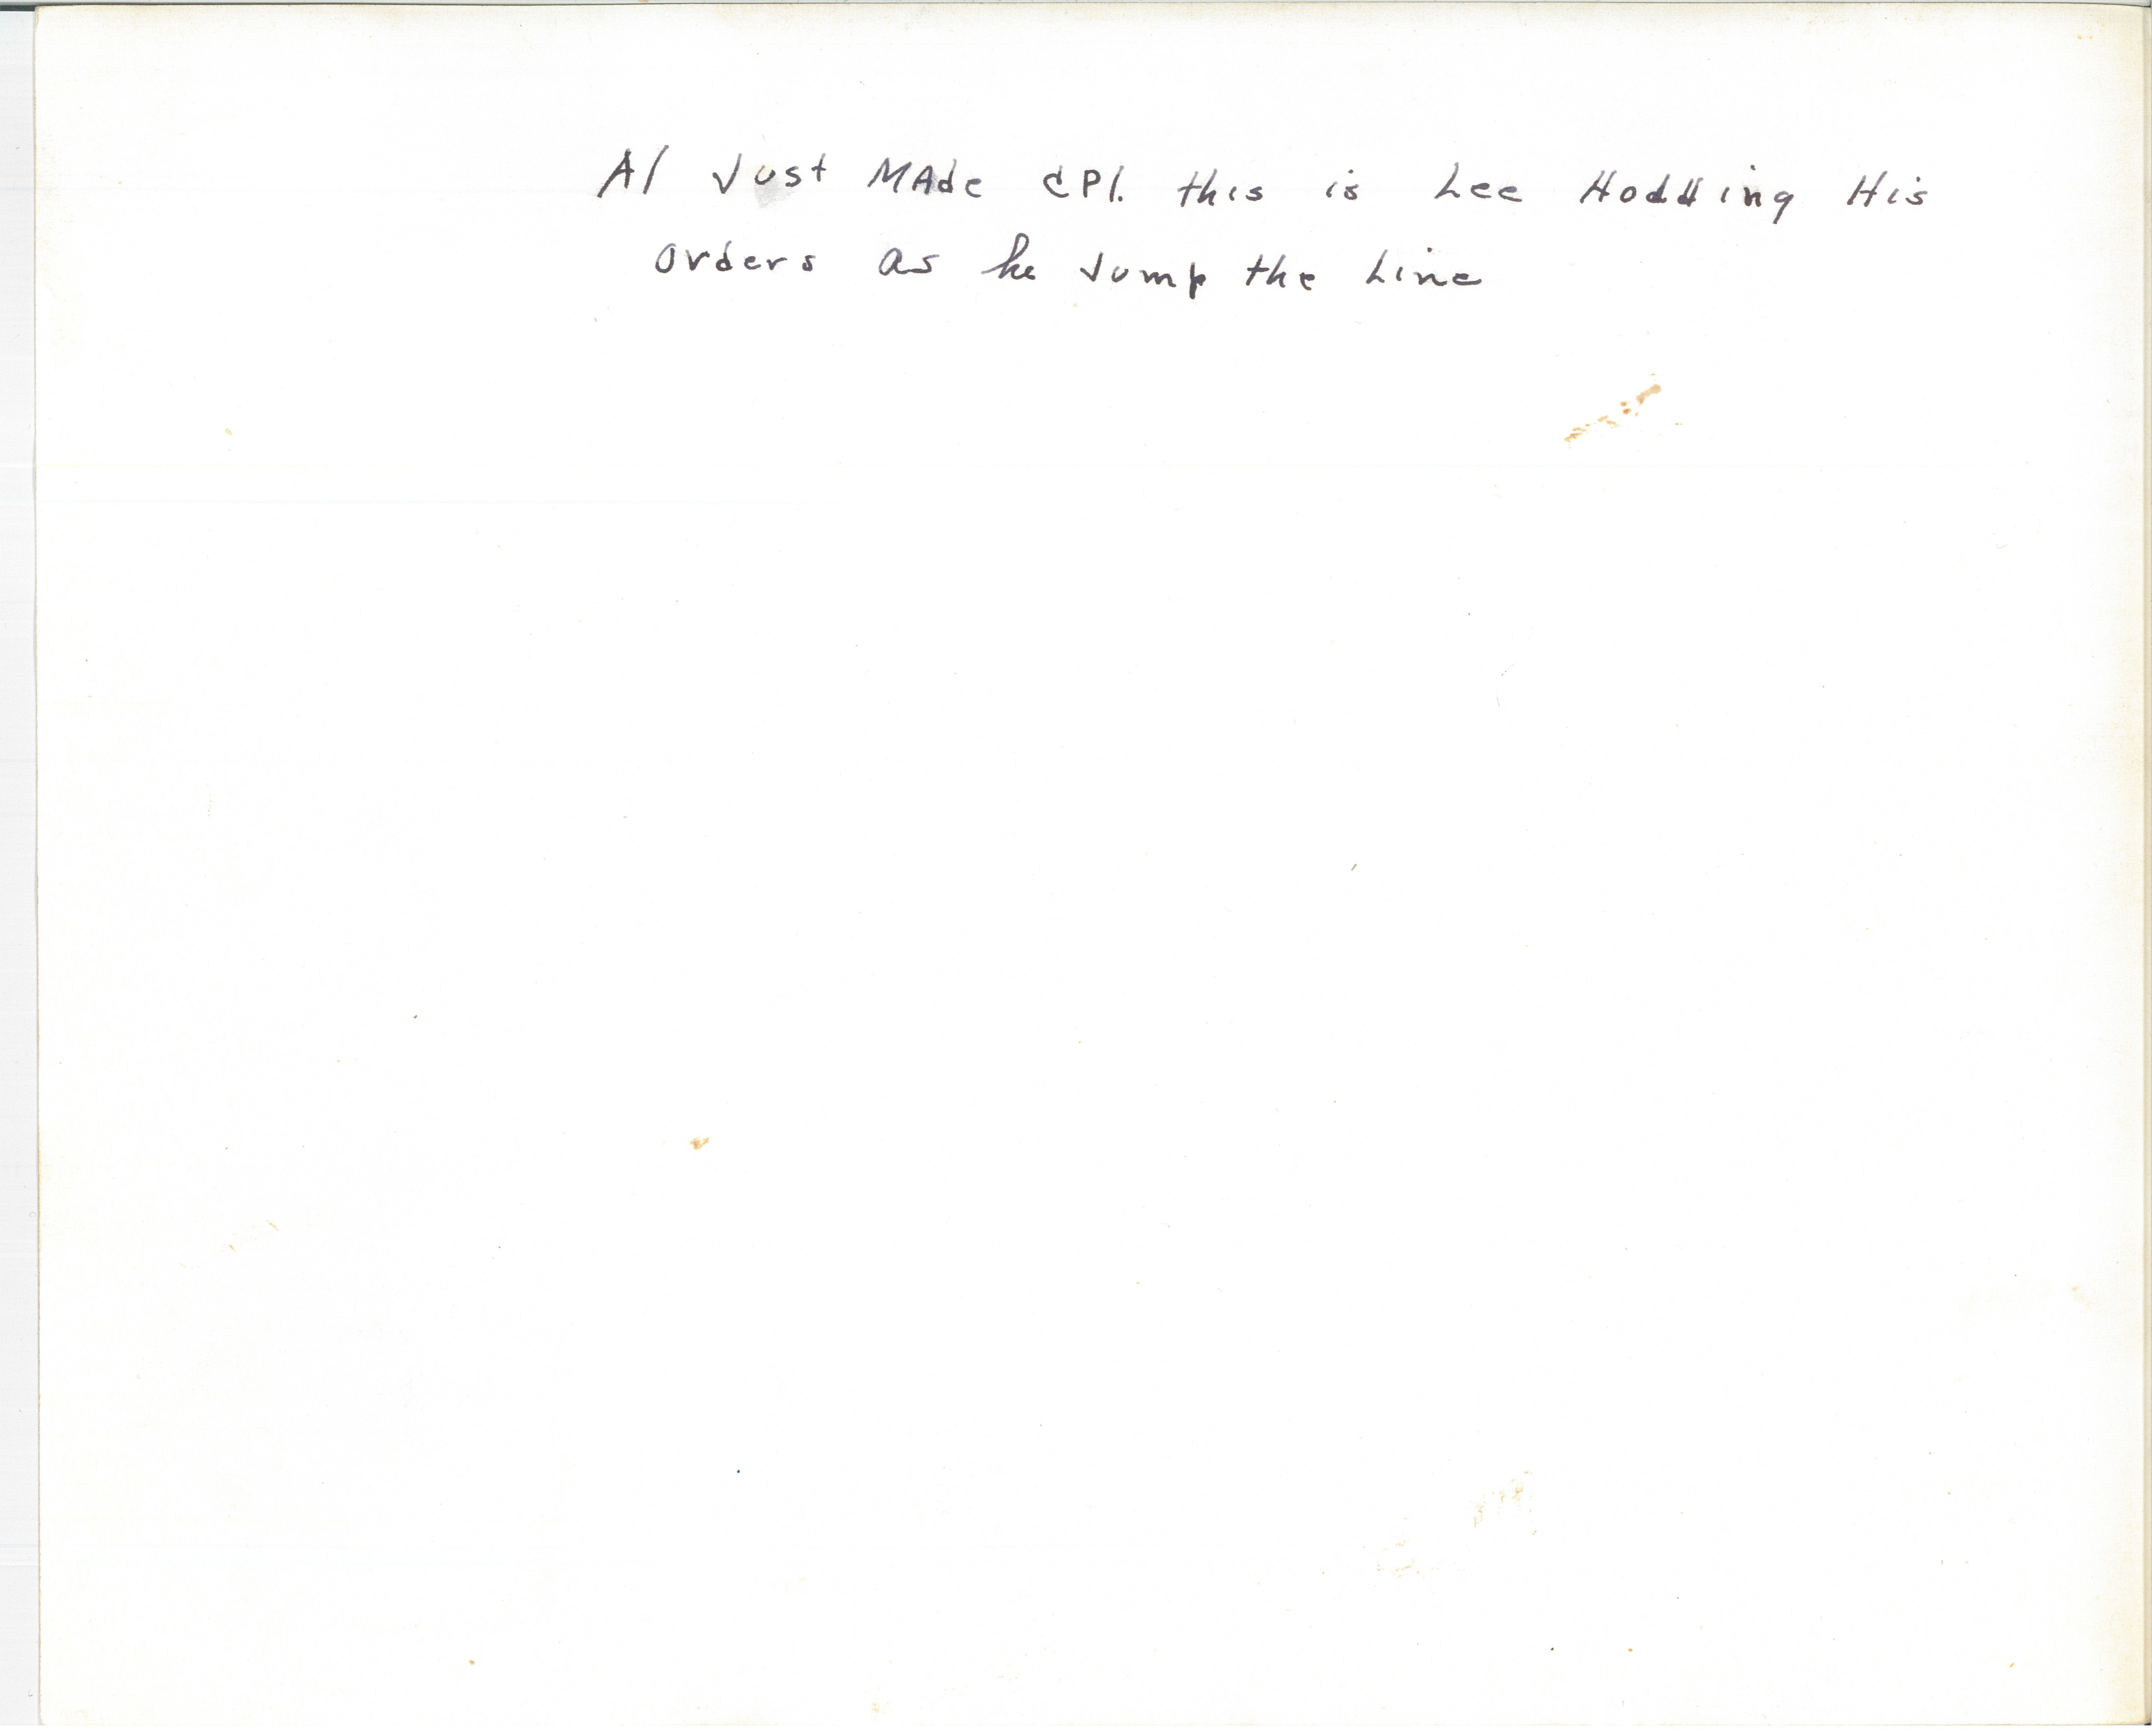 Al Just MAde CPl. this is Lee Hodding His
Orders as he Jump the Line